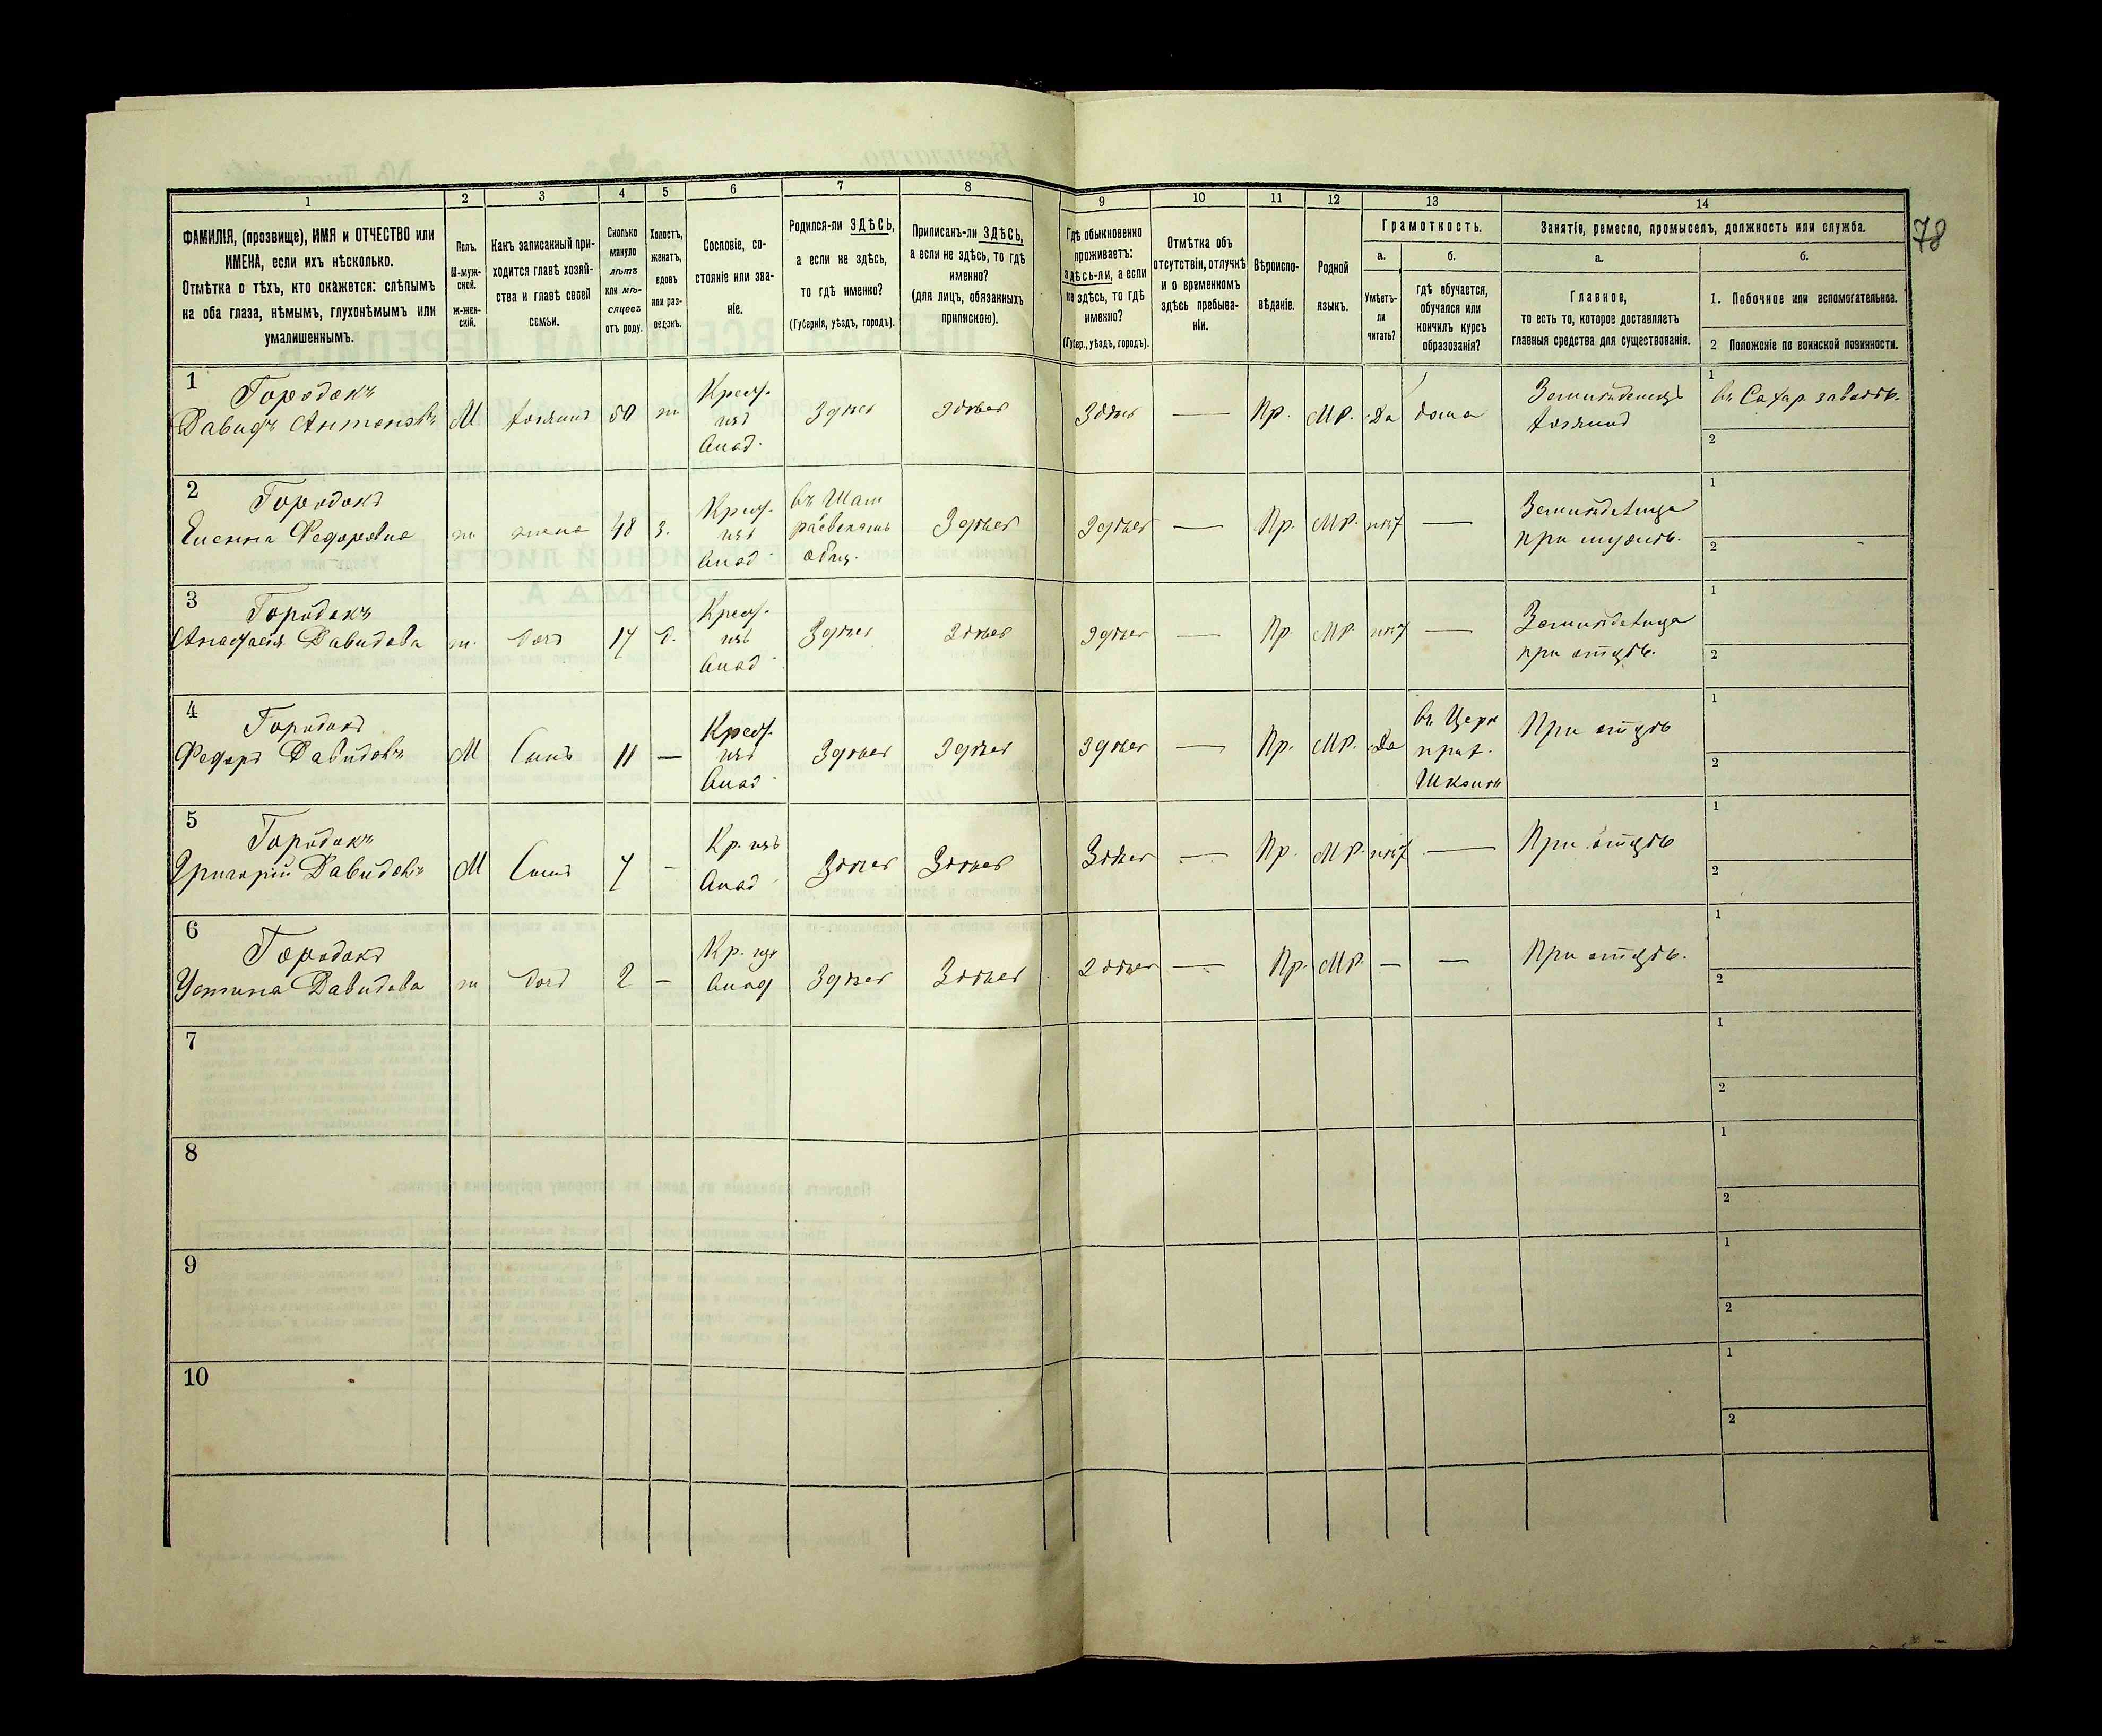 78
1 2 3 4 5 6 7 8 9 10 11 12 13 14
ФАМИЛІЯ, (прозвище), ИМЯ и ОТЧЕСТВО или
ИМЕНА, если ихъ нѣсколько.
Отмѣтка о тѣхъ, кто окажется: слѣпымъ
на оба глаза, нѣмымъ, глухонѣмымъ или
умалишеннымъ.
Полъ.
М-муж-
ской.
Ж-жен-
скій.
Какъ записанный при-
ходится главѣ хозяй-
ства и главѣ своей
семьи.
Сколько
минуло
лѣтъ
или мѣ-
сяцевъ
отъ роду.
Холостъ,
женатъ,
вдовъ
или раз-
веденъ.
Сословіе, со-
стояніе или зва-
ніе.
Родился-ли ЗДѢСЬ,
а если не здѣсь,
то гдѣ именно?
(Губернія, уѣздъ, городъ).
Приписанъ-ли ЗДѢСЬ,
а если не здѣсь, то гдѣ
именно?
(для лицъ, обязанныхъ
припискою).
Гдѣ обыкновенно
проживаетъ:
здѣсь-ли, а если
не здѣсь, то гдѣ
именно?
(Губер., уѣздъ, городъ).
Отмѣтка объ
отсутствіи, отлучкѣ
и о временномъ
здѣсь пребыва-
ніи.
Вѣроиспо-
вѣданіе.
Родной
языкъ.
Грамотность.
а.
Умѣетъ-
ли
читать?
б.
гдѣ обучается,
обучался или
кончилъ курсъ
образованія?
Занятія, ремесло, промыселъ, должность или служба.
а.
Главное,
то есть то, которое доставляетъ
главныя средства для существованія.
б.
1. Побочное или вспомогательное.
2 Положеніе по воинской повинности.
1 Городокъ
Давидъ Антоновъ М хозяинъ 50 ж. Крест. изъ Влад. Здѣсь Здѣсь Здѣсь — Пр. МР. Да дома Земледѣлецъ хозяинъ
1 въ Сахар. заводѣ.
2
2 Городокъ
Елена Федорова ж. жена 48 з. Крест. изъ Влад. въ общ. Здѣсь Здѣсь — Пр. МР. нѣт — Земледѣлица при мужѣ.
1
2
3 Городокъ
Анастасія Давидова ж. дочь 17 д. Крест. изъ Влад. Здѣсь Здѣсь Здѣсь — Пр. МР. нѣт — Земледѣлица при отцѣ.
1
2
4 Городокъ
Федоръ Давидовъ М Сынъ 11 — Крест. изъ Влад. Здѣсь Здѣсь Здѣсь — Пр. МР. Да въ Церк прих. Школѣ При отцѣ
1
2
5 Городокъ
Григорій Давидовъ М Сынъ 7 - Кр. изъ Влад. Здѣсь Здѣсь Здѣсь — Пр. МР. нѣт — При отцѣ
1
2
6 Городокъ
Устина Давидова ж дочь 2 — Кр. изъ Влад Здѣсь Здѣсь Здѣсь — Пр. МР. — — При отцѣ.
1
2
7
1
2
8
1
2
9
1
2
10
1
2